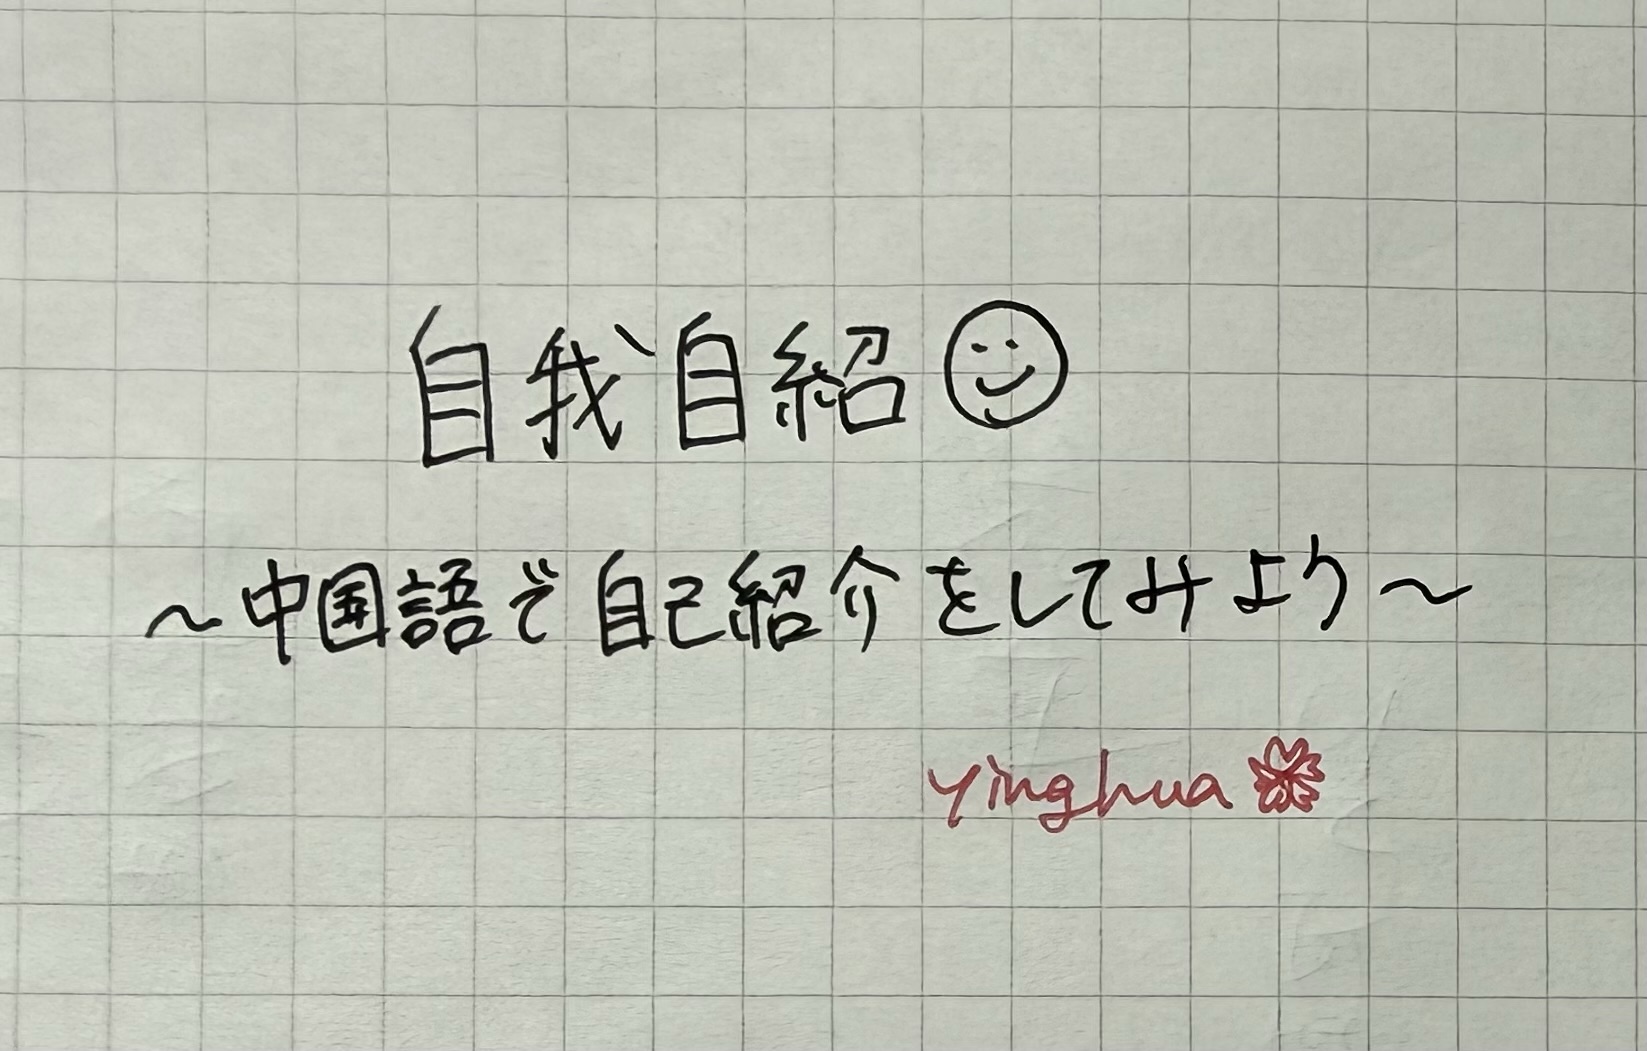 自我自紹
～中国語で自己紹介をしてみよう～
yinghua